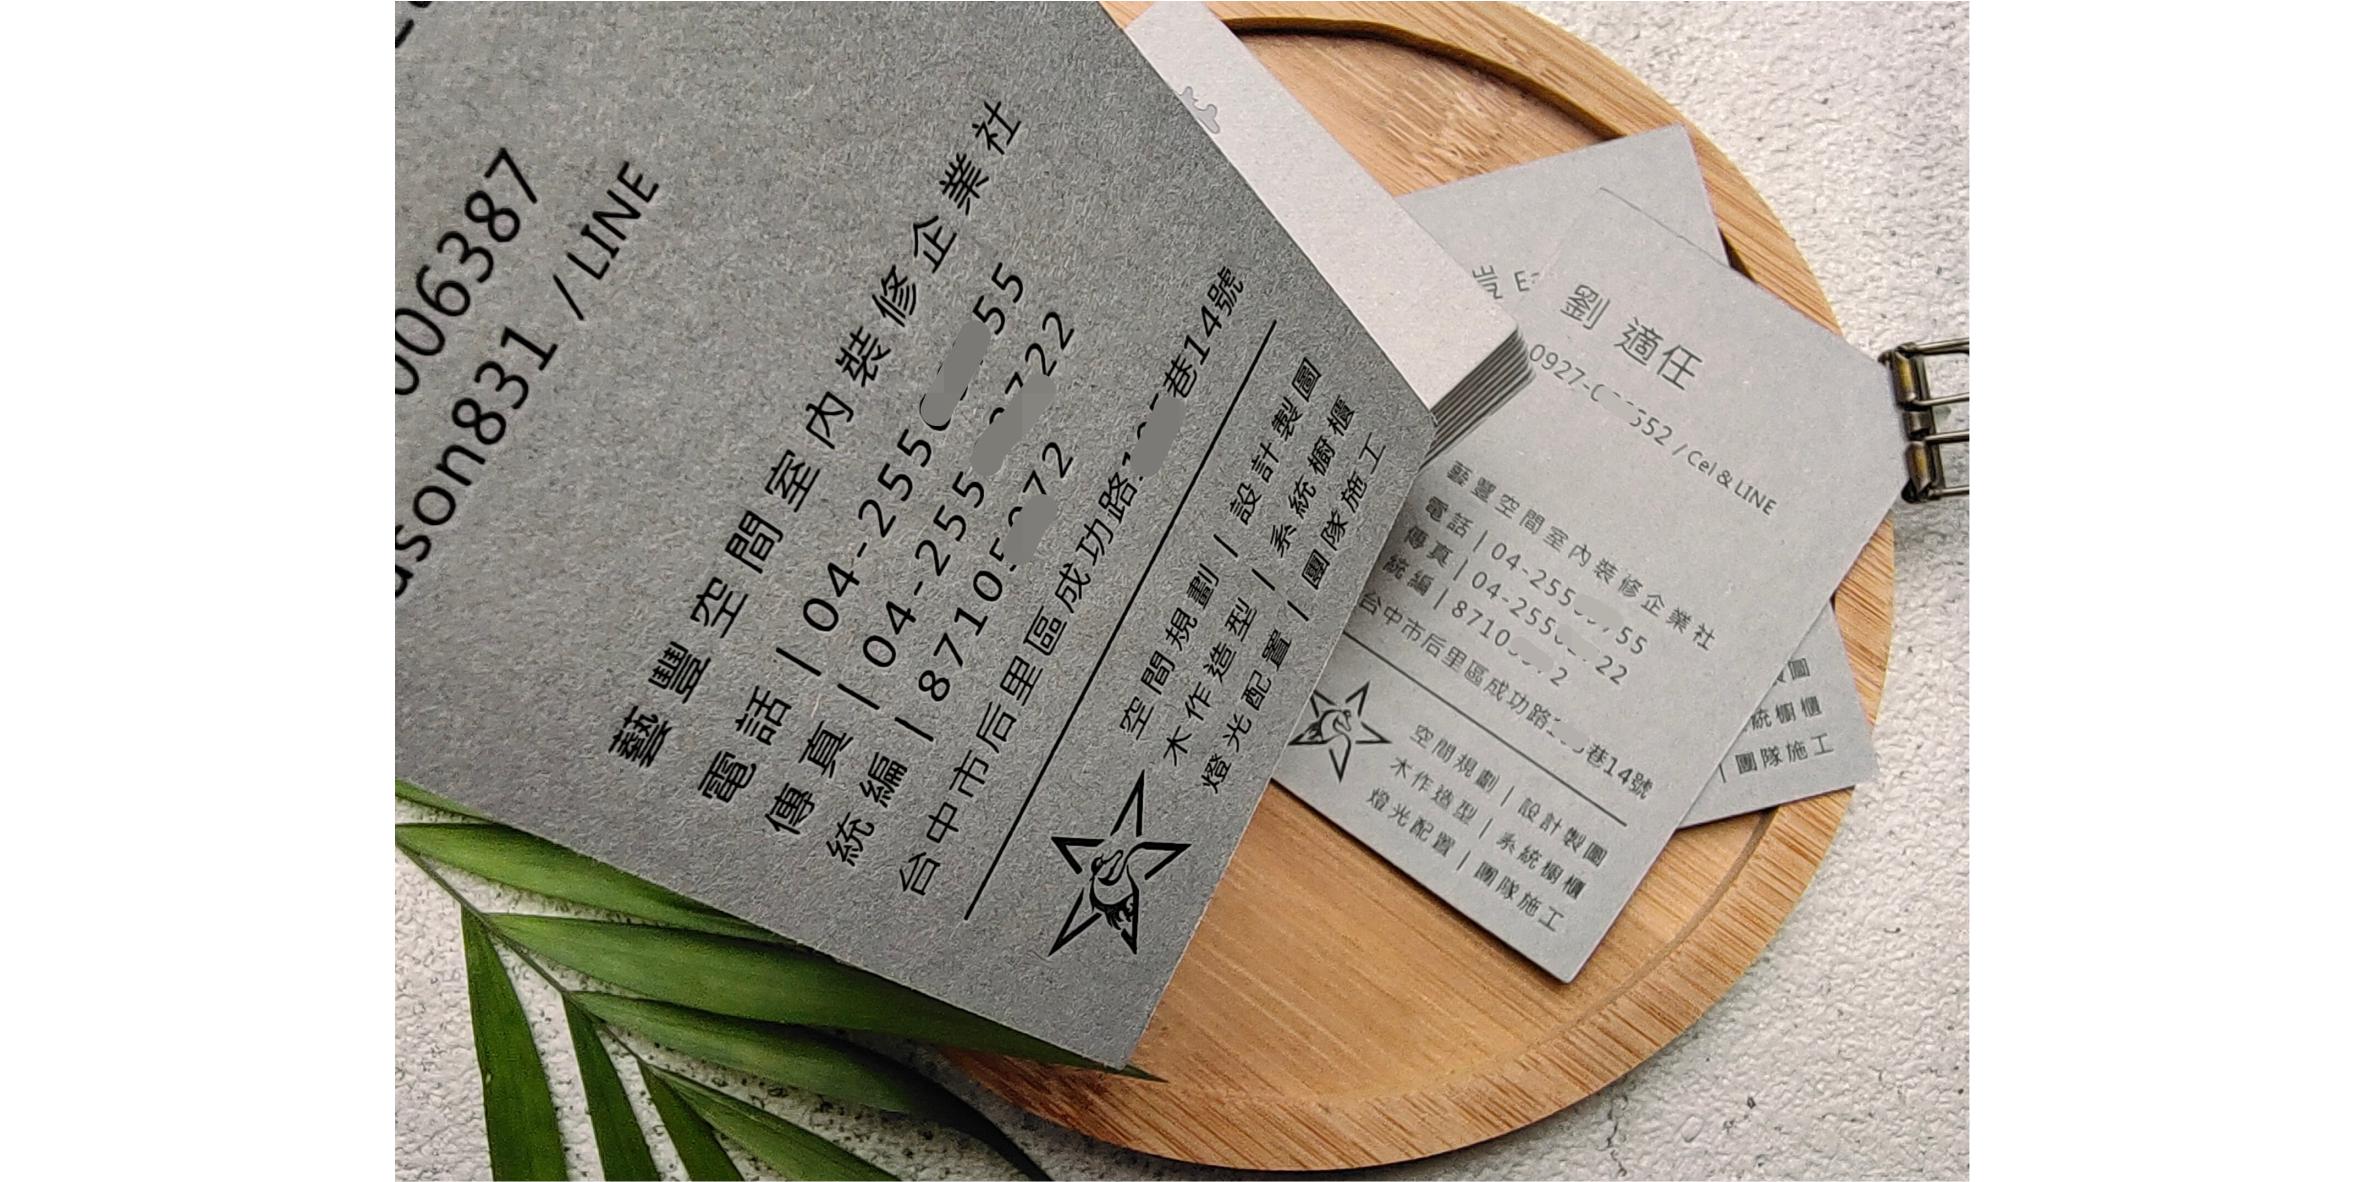 006387
ason831 /LINE
藝豐空間室內裝修企業社
電話 | 04-255 55
傳真 | 04-255 22
統編 | 8710 72
台中市后里區成功路 巷14號
空間規劃 | 設計製圖
木作造型 | 系統櫥櫃
燈光配置 | 團隊施工
劉適任
0927- 552 / Cel & LINE
藝豐空間室內裝修企業社
電話 | 04-255 55
傳真 | 04-255 22
統編 | 8710 2
台中市后里區成功路 巷14號
空間規劃 | 設計製圖
木作造型 | 系統櫥櫃
燈光配置 | 團隊施工
圖
統櫥櫃
| 團隊施工